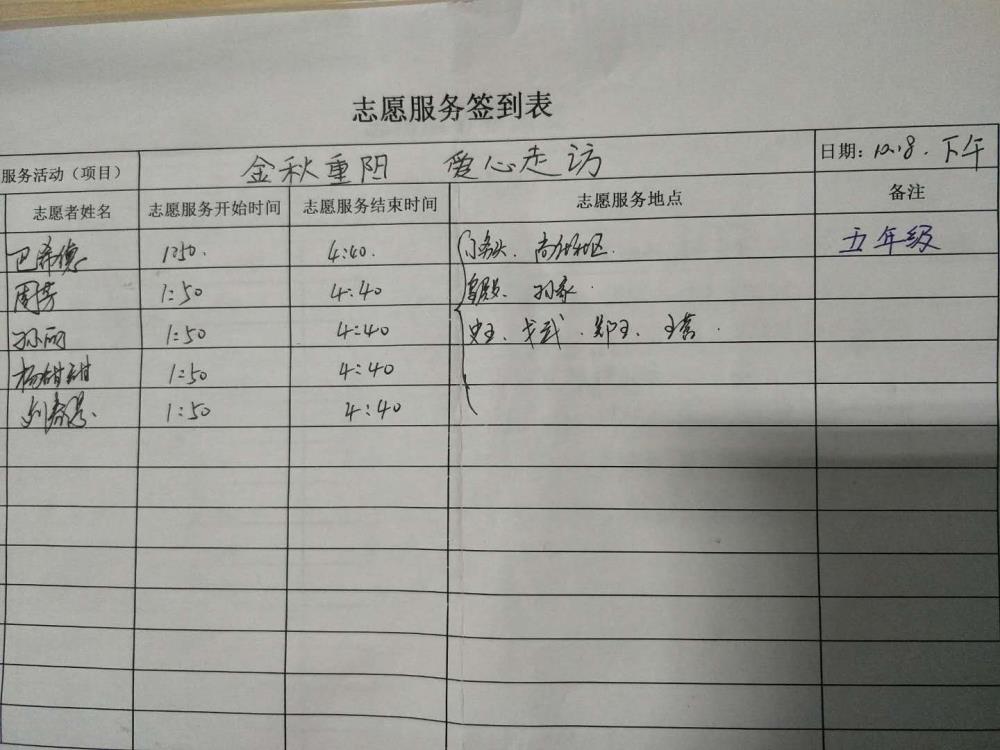 志愿服务签到表
服务活动（项目） 金秋重阳 爱心走访 日期：10.18.下午
志愿者姓名 志愿服务开始时间 志愿服务结束时间 志愿服务地点 备注
巴希德 1:50. 4:40. 五年级
周芳 1:50 4:40 孙家.
孙丽 1:50 4:40 史王、戈武.郑王、王营.
杨甜甜 1:50 4:40
刘春 1:50 4:40